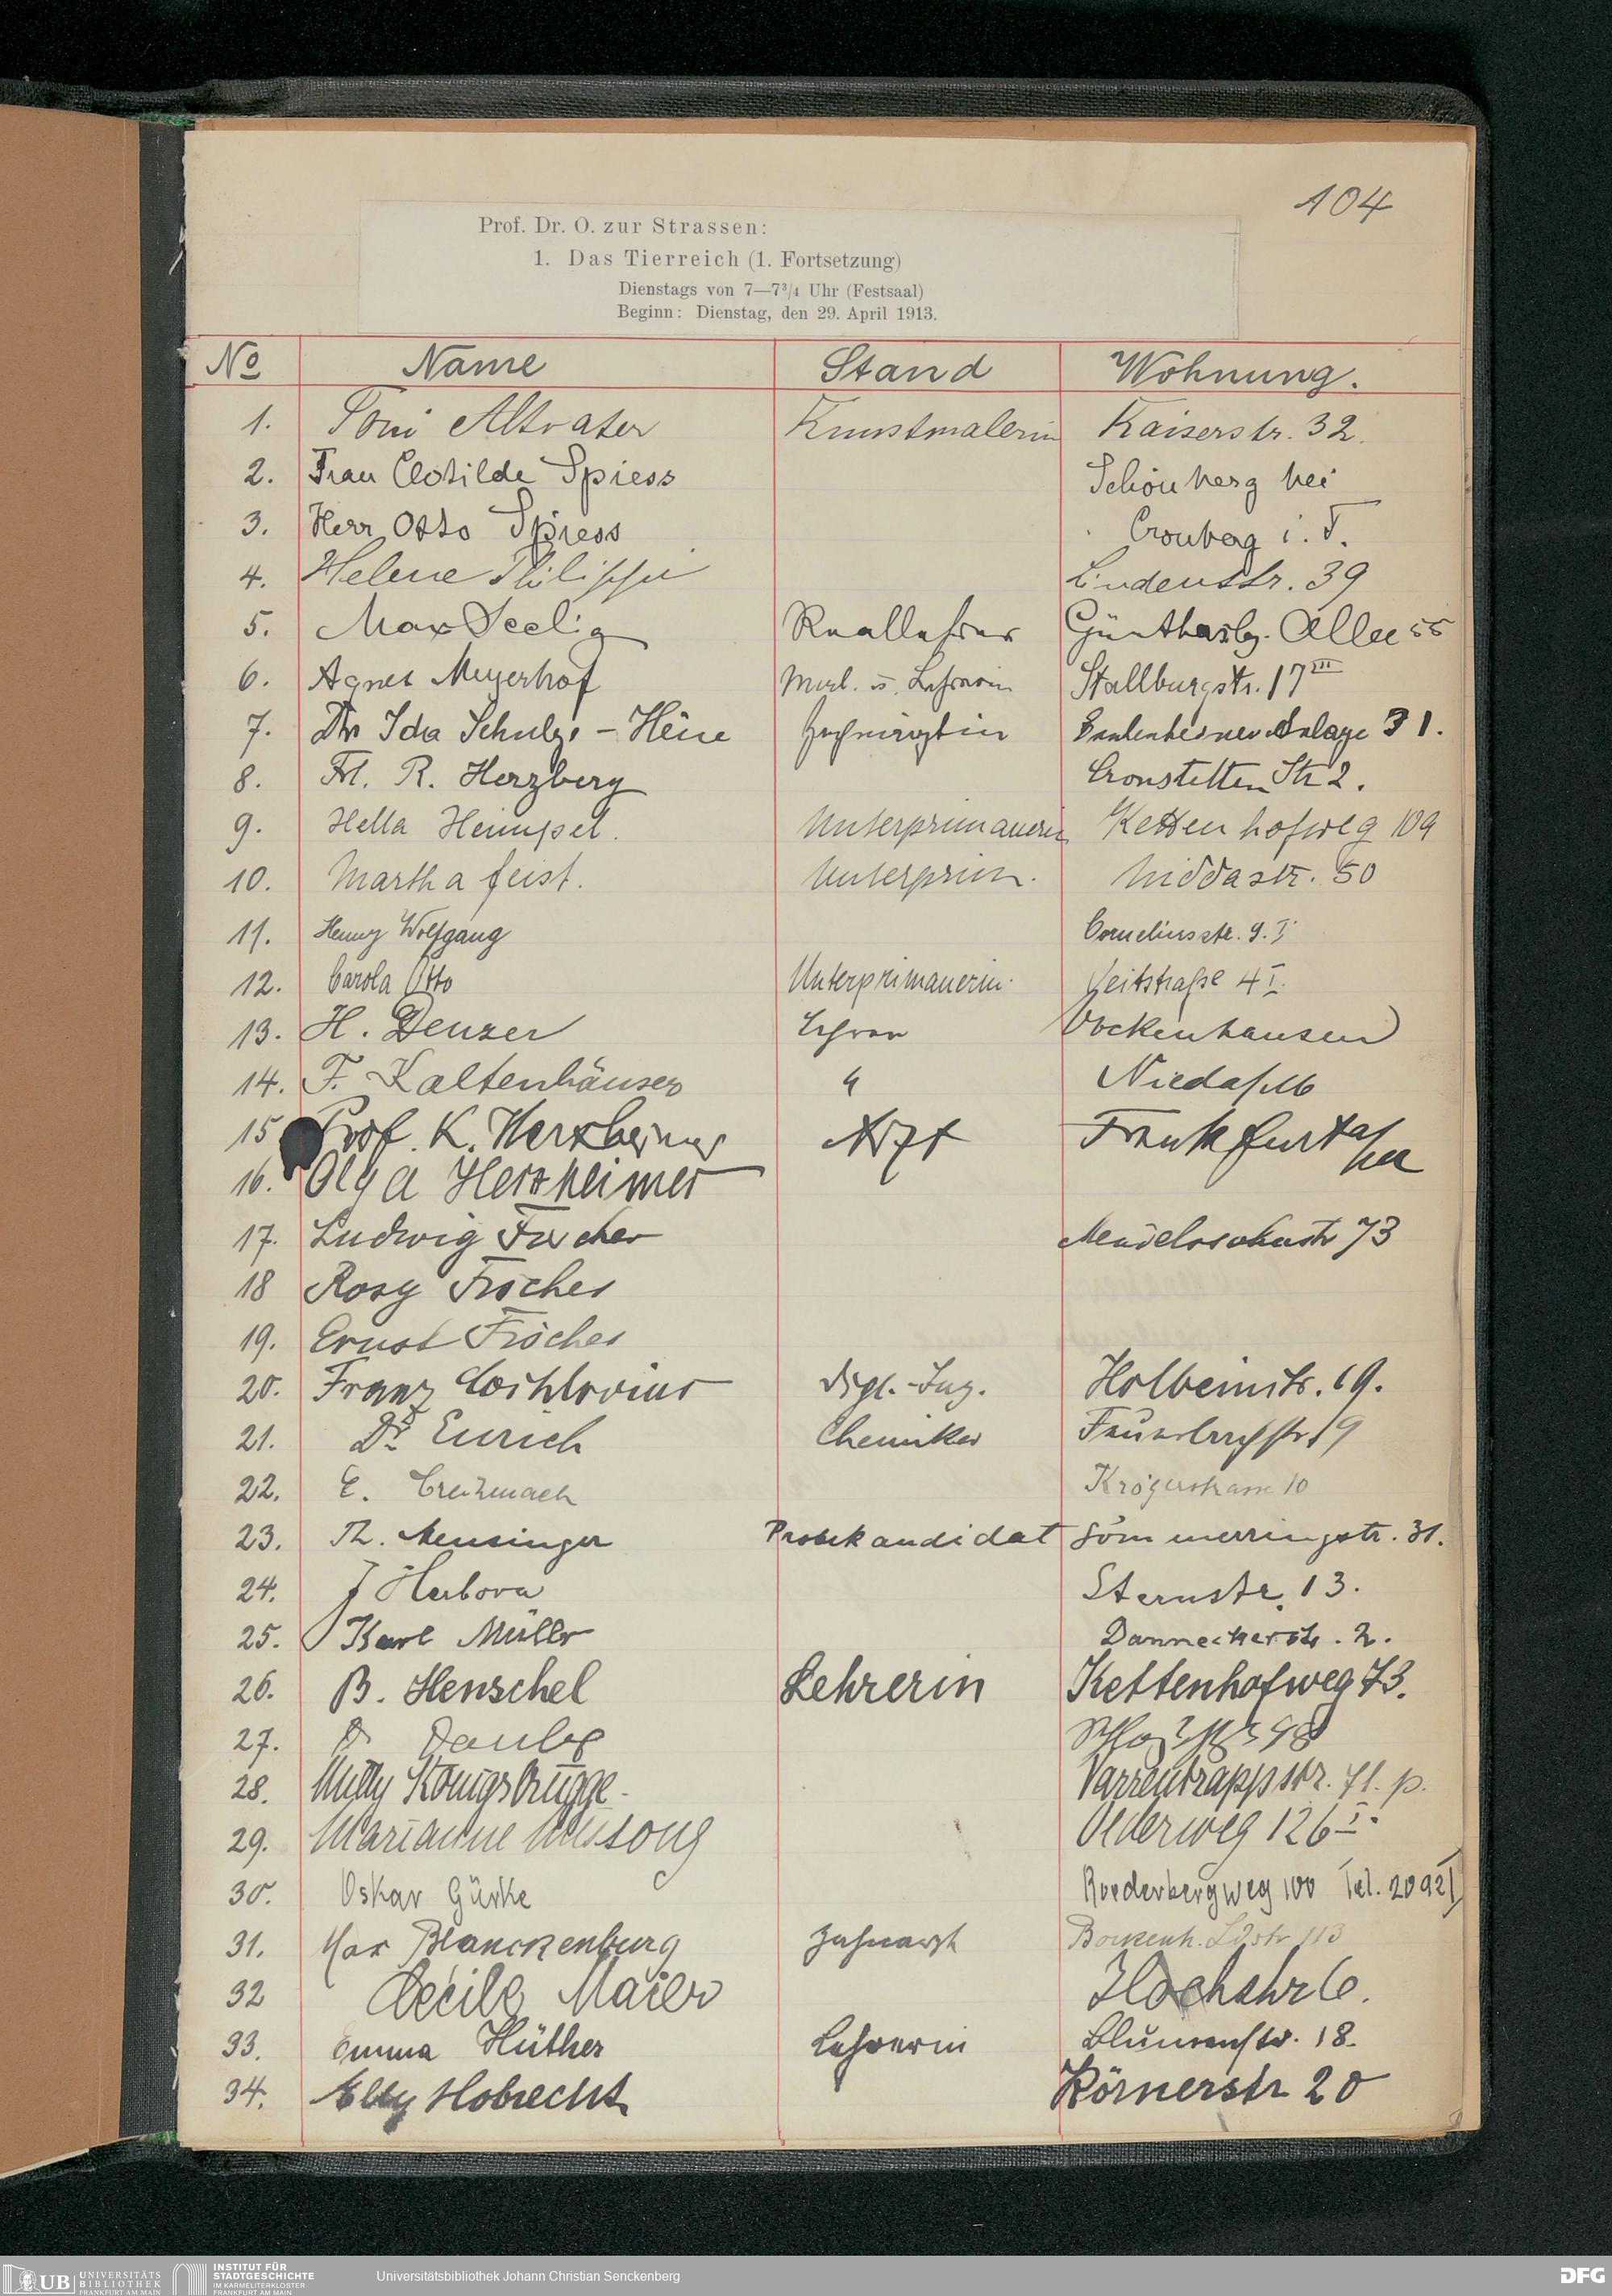 104
Prof. Dr. O. zur Strassen:
1. Das Tierreich (1. Fortsetzung)
Dienstags von 7—7¾ Uhr (Festsaal)
Beginn: Dienstag, den 29. April 1913.
No Name Stand Wohnung.
1. Toni Altvater Kunstmalerin Kaiserstr. 32.
2. Frau Clotilde Spiess Schönberg bei
3. Herr Otto Spiess Cronberg i. T.
4. Helene Philippi Lindenstr. 39
5. Max Seelig Reallehrer Günthersbg. Allee 55
6. Agnes Meyerhof Mal. u. Lehrerin Stallburgstr. 17 III
7. Dr Ida Schulze - Heine Anlage 31.
8. Frl. R. Herzberg Cronstetten Str 2.
9. Hella Heimpel. Unterprimanerin Kettenhofweg 109
10. Martha Feist. Unterprim. Niddastr. 50
11. Henny Wolfgang Corneliusstr. 9. I
12. Carola Otto Unterprimanerin. Veitstraße 4 I.
13. H. Denzer Lehrer Vockenhausen
14. F. Kaltenhäuser " Nieda/M
15 Prof. K. Herxheimer Arzt Frankfurt a/M
16. Olga Herxheimer
17. Ludwig Fischer Mendelssohnstr 73
18 Rosy Fischer
19. Ernst Fischer
20. Franz Dipl.-Ing. Holbeinstr. 69.
21. Dr. Eurich Chemiker Feuerbachstr 19
22. E. Creizenach Krögerstrasse 10
23. Th. Mensinger Probekandidat Sömmerringstr. 31.
24. J Sternstr. 13.
25. Karl Müller Danneckerstr. 2.
26. B. Henschel Lehrerin Kettenhofweg 73.
27. Daube
28. Milly Königsbrügge. Varrentrappstr. 71. p.
29. Marianne Oederweg 126 I.
30. Oskar Gürke Roederbergweg 100 Tel. 20921
31. Max Blanckenburg Zahnarzt Bockenh. Ldstr 113
32 Cécile Maier Hochstr 6.
33. Emma Hüther Lehrerin Blumenstr. 18.
34. Elly Hobrecht Körnerstr 20
UB UNIVERSITÄTS
BIBLIOTHEK
FRANKFURT AM MAIN
INSTITUT FÜR
STADTGESCHICHTE
IM KARMELITERKLOSTER
FRANKFURT AM MAIN
Universitätsbibliothek Johann Christian Senckenberg
DFG